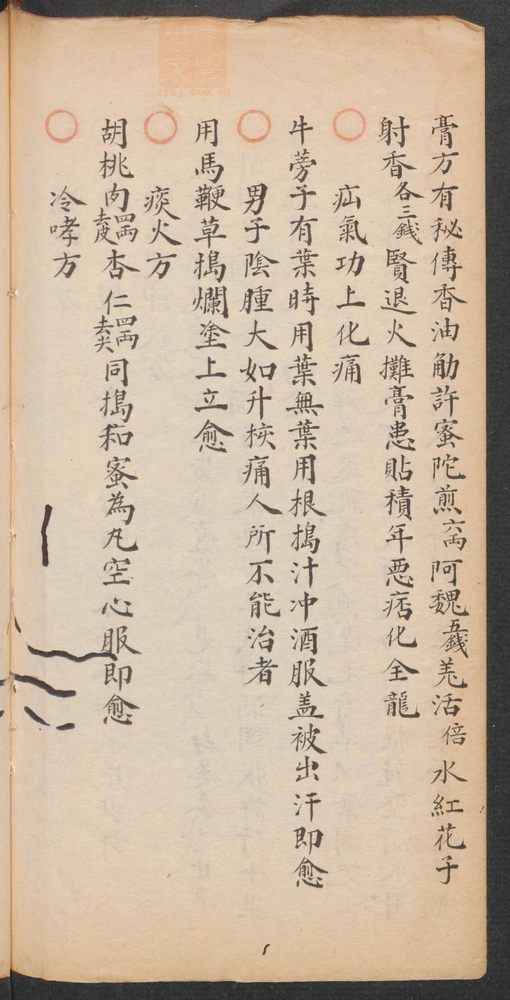 膏方有秘傳香油觔許蜜陀煎六兩阿魏五錢羌活倍水紅花子
射香各三錢賢退火攤膏患貼積年惡痞化全龍
○疝氣功上化痛
牛蒡子有葉時用葉無葉用根搗汁冲酒服盖被出汗即愈
○男子陰腫大如升核痛人所不能治者
用馬鞭草搗爛塗上立愈
○痰火方
胡桃肉四兩去皮杏仁四兩去尖同搗和蜜為丸空心服即愈
○冷哮方